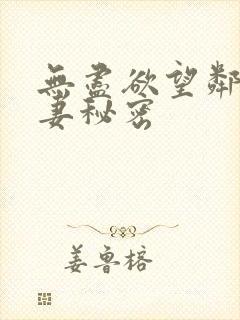 無盡欲望鄰
妻秘密
姜魯榕